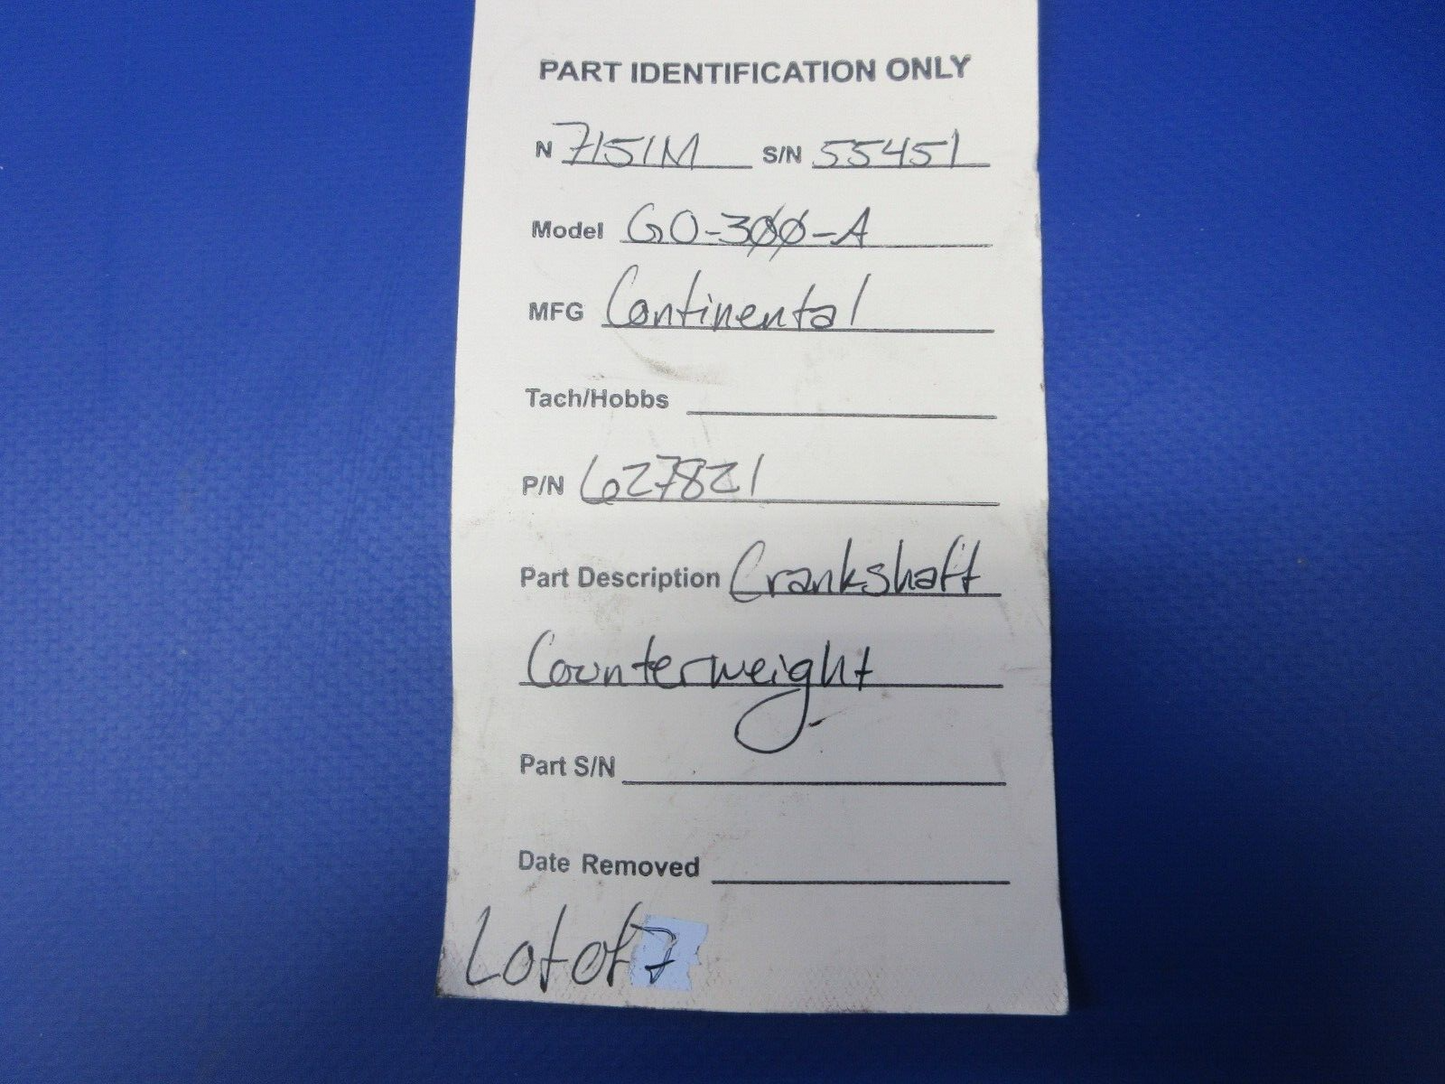 PART IDENTIFICATION ONLY
N 7151M S/N 55451
Model GO-300-A
MFG Continental
Tach/Hobbs
P/N 627821
Part Description Crankshaft
Counterweight
Part S/N
Date Removed
Lot of 7